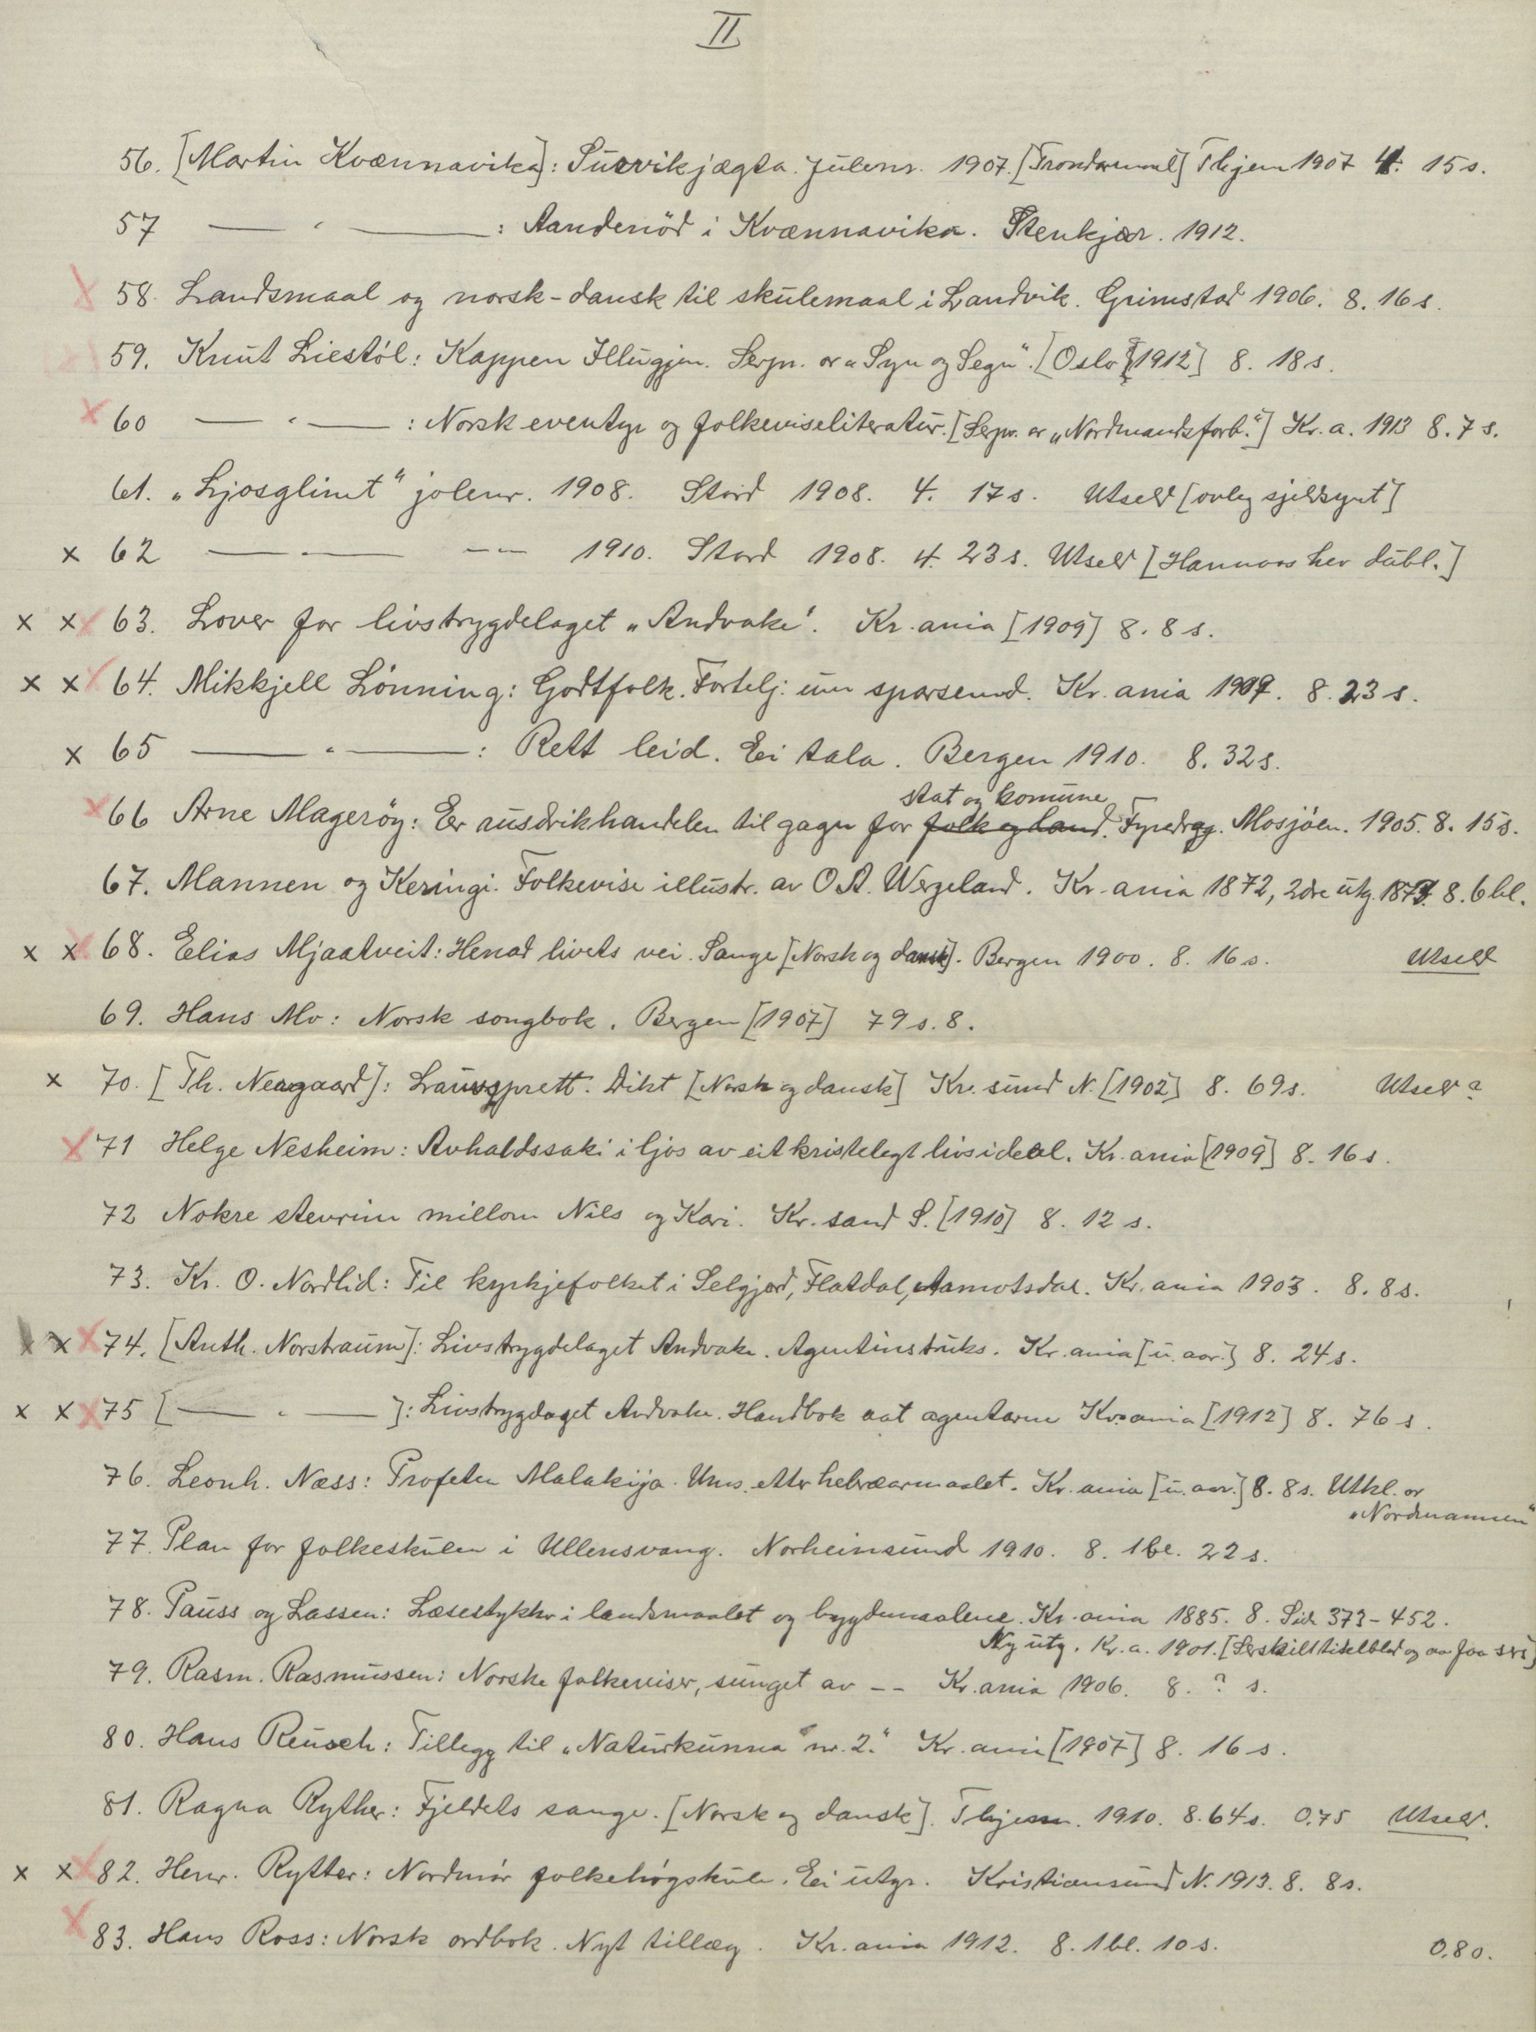 II
56. [Martin Kvænnavika]: Survikjægta. Julenr. 1907. [Trondermaal] Thjem 1907 4. 15 s.
57 —— " ——— : Aandenöd i Kvænnavika. Stenkjær. 1912.
x 58. Landsmaal og norsk-dansk til skulemaal i Landvik. Grimstad 1906. 8. 16 s.
59. Knut Liestøl: Kappen Illugjen. Serpr. or „Syn og Segn". [Oslo 1912] 8. 18 s.
x 60 —— " —— : Norsk eventyr og folkeviseliteratur. [Serpr. or „Nordmandsforb."] Kr.a. 1913 8. 7 s.
61. „Ljosglimt" jolenr. 1908. Stord 1908. 4. 17 s. Utseld [ovleg sjeldsynt]
x 62 —— " —— -"- 1910. Stord 1908. 4. 23 s. Utseld [Hannaas hev dubl.]
x x x 63. Lover for livstrygdelaget „Andvake". Kr.ania [1909] 8. 8 s.
x x x 64. Mikkjell Lönning: Godtfolk. Fortelj. um sparsemd. Kr.ania 1907. 8. 23 s.
x 65 —— " —— : Rett leid. Ei tala. Bergen 1910. 8. 32 s.
stat og komune
x 66 Arne Magerøy: Er rusdrikhandelen til gagn for folk og land. Fyredrag. Mosjøen. 1905. 8. 15 s.
67. Mannen og Keringi. Folkevise illustr. av O.A. Wergeland. Kr.ania 1872, 2dre utg. 1873. 8. 6 bl.
x x x 68. Elias Mjaatveit: Henad livets vei. Sange [Norsk og dansk]. Bergen 1900. 8. 16 s. Utseld
69. Hans Mo: Norsk songbok. Bergen [1907] 79 s. 8.
x 70. [Th. Neergaard]: Lausprett. Dikt [Norsk og dansk] Kr.sund N. [1902] 8. 69 s. Utseld?
x 71 Helge Nesheim: Avhaldssaki i ljos av eit kristelegt livsideal. Kr.ania [1909] 8. 16 s.
72 Nokre stevrim millom Nils og Kari. Kr.sand S. [1910] 8. 12 s.
73. Kr. O. Nordlid: Til kyrkjefolket i Selgjord, Flatdal, Aamotsdal. Kr.ania 1903. 8. 8 s.
x x x 74. [Anth. Norstraum]: Livstrygdelaget Andvake. Agentinstruks. Kr.ania [u. aar.] 8. 24 s.
x x x 75 [—— " ——]: Livstrygdlaget Andvake. Handbok aat agentarne Kr.ania [1912] 8. 76 s.
76. Leonh. Næss: Profeten Malakija. Ums. etter hebræarmaalet. Kr.ania [u. aar.] 8. 8 s. Utkl. or
„Nordmannen"
77. Plan for folkeskulen i Ullensvang. Norheimsund 1910. 8. 1 bl. 22 s.
78. Pauss og Lassen: Læsestykker i landsmaalet og bygdemaalene. Kr.ania 1885. 8. Side 373-452.
Ny utg. Kr.a. 1901. [Serskilt titelblad og aa faa seg]
79. Rasm. Rasmussen: Norske folkeviser, sunget av -- Kr.ania 1906. 8. ? s.
80. Hans Reusch: Tillegg til „Naturkunna" nr. 2." Kr.ania [1907] 8. 16 s.
81. Ragna Ryther: Fjeldets sange. [Norsk og dansk]. Thjem. 1910. 8. 64 s. 0.75 Utseld.
x x x 82. Henr. Rytter: Nordmør folkehøgskule. Ei utgr. Kristiansund N. 1913. 8. 8 s.
x 83. Hans Ross: Norsk ordbok. Nyt tillæg. Kr.ania 1912. 8. 1 bl. 10 s. 0.80.